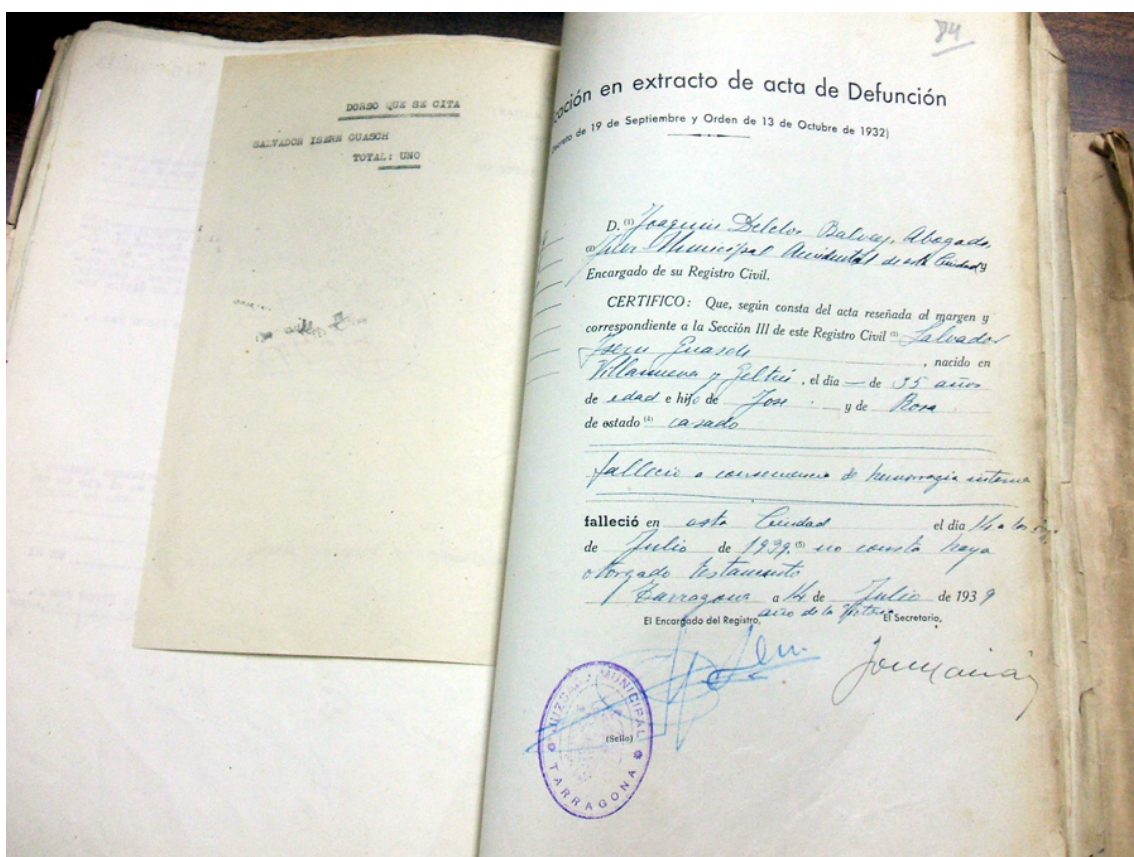 DORSO QUE SE CITA
SALVADOR ISERN GUASCH
TOTAL: UNO
84
cación en extracto de acta de Defunción
Decreto de 19 de Septiembre y Orden de 13 de Octubre de 1932)
D. (1) Joaquin Delclos Balvey, Abogado,
(2) Juez Municipal Accidental de esta Ciudad y
Encargado de su Registro Civil.
CERTIFICO: Que, según consta del acta reseñada al margen y
correspondiente a la Sección III de este Registro Civil (3) Salvador
Isern Guasch, nacido en
Villanueva y Geltrú, el día — de 35 años
de edad e hijo de Jose y de Rosa
de estado (4) casado
fallecio a consecuencia de hemorragia interna
falleció en esta Ciudad el día 14 a las
de Julio de 1939. (5) no consta haya
otorgado testamento
Tarragona a 14 de Julio de 1939
año de la Victoria
El Encargado del Registro, El Secretario,
(Sello)
JUZGADO MUNICIPAL
TARRAGONA